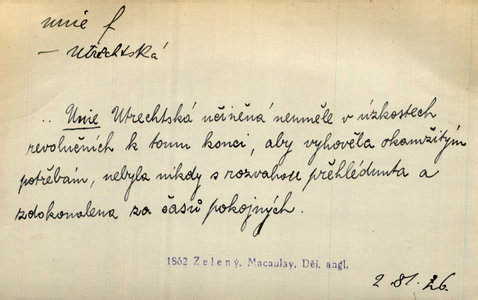 unie f
– Utrechtská
.. Unie Utrechtská učiněná neuměle v úzkostech
revolučních k tomu konci, aby vyhověla okamžitým
potřebám, nebyla nikdy s rozvahou přehlédnuta a
zdokonalena za časů pokojných.
1862 Zelený, Macaulay, Děj. angl.
2.81.26.